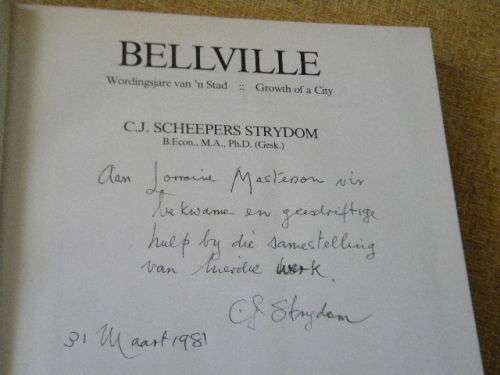 BELLVILLE
Wordingsjare van 'n Stad :: Growth of a City
C.J. SCHEEPERS STRYDOM
B.Econ., M.A., Ph.D. (Gesk.)
Aan Lorraine Masterson vir
bekwame en geesdriftige
hulp by die samestelling
van hierdie werk.
C.J. Strydom
31 Maart 1981